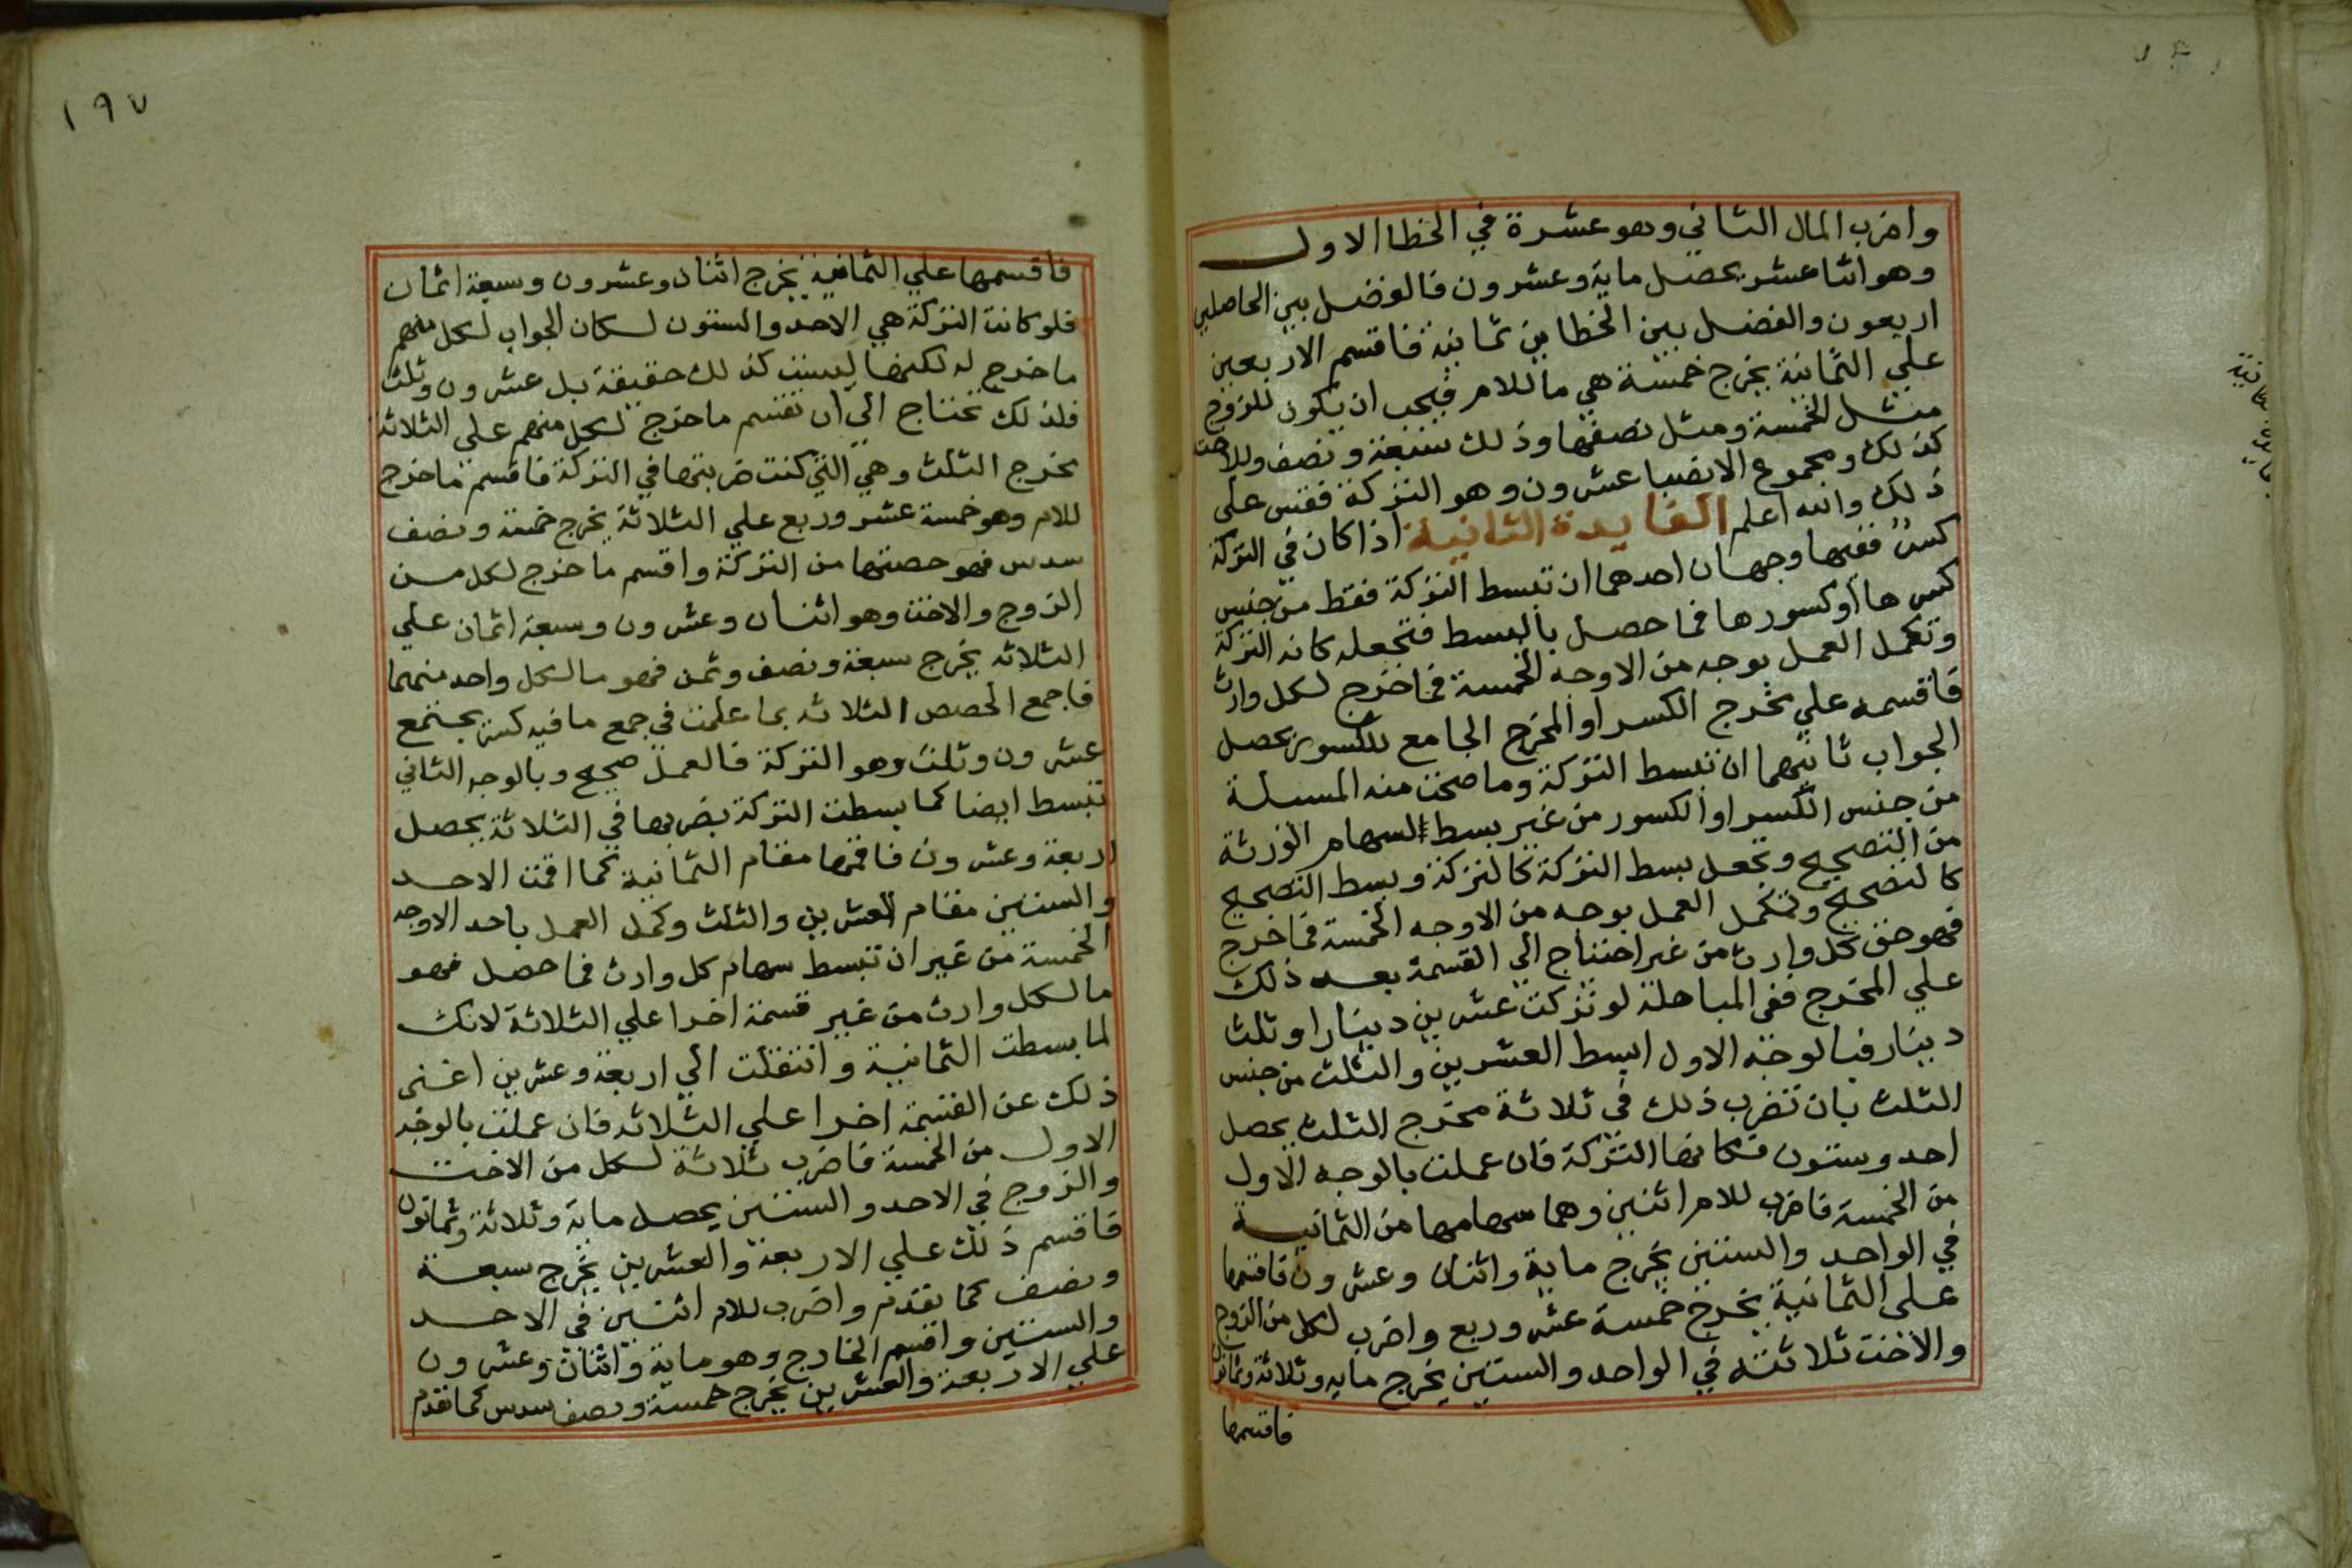 واضرب المال الثاني وهو عشرة في الخطا الاول
وهو اثنا عشر يحصل ماية وعشرون فالفضل بين الحاصلين
اربعون والفضل بين الخطاين ثمانية فاقسم الاربعين
علي الثمانية يخرج خمسة هي ما للام فيجب ان يكون للزوج
مثل الخمسة ومثل نصفها وذلك سبعة ونصف وللاخت
كذلك ومجموع الانصبا عشرون وهو التركة فقس على
ذلك والله اعلم الفايدة الثانية اذا كان في التركة
كسر ففيها وجهان احدهما ان تبسط التركة فقط من جنس
كسرها او كسورها فما حصل بالبسط فتجعله كانه التركة
وتكمل العمل بوجه من الاوجه الخمسة فما خرج لكل وارث
فاقسمه علي مخرج الكسر او المخرج الجامع للكسور يحصل
الجواب ثانيهما ان تبسط التركة وما صحت منه المسلة
من جنس الكسر او الكسور من غير بسط السهام الورثة
من التصحيح وتجعل بسط التركة كالتركة وبسط التصحيح
كالتصحيح وتكمل العمل بوجه من الاوجه الخمسة فما خرج
فهو حق كل وارث من غير احتياج الي القسمة بعد ذلك
علي المخرج ففي المباهلة لو تركت عشرين دينارا وثلث
دينار فبالوجه الاول ابسط العشرين والثلث من جنس
الثلث بان تضرب ذلك في ثلاثة مخرج الثلث يحصل
احد وستون فكانها التركة فان عملت بالوجه الاول
من الخمسة فاضرب للام اثنين وهما سهامها من الثمانية
في الواحد والستين يخرج ماية واثنان وعشرون فاقسمها
على الثمانية يخرج خمسة عشر وربع واضرب لكل من الزوج
والاخت ثلاثته في الواحد والستين يخرج مايه وثلاثة وثمانون
فاقسمها
١٩٧
فاقسمها علي الثمانية يخرج اثنان وعشرون وسبعة اثمان
فلو كانت التركة هي الاحد والستون لكان الجواب لكل منهم
ما خرج له لكنها ليست كذلك حقيقة بل عشرون وثلث
فلذلك تحتاج الي ان تقسم ما خرج لكل منهم على الثلاثة
مخرج الثلث وهي التي كنت ضربتها في التركة فاقسم ما خرج
للام وهو خمسة عشر وربع علي الثلاثة يخرج خمسة ونصف
سدس فهو حصتها من التركة واقسم ما خرج لكل من
الزوج والاخت وهو اثنان وعشرون وسبعة اثمان علي
الثلاثه يخرج سبعة ونصف وثمن فهو ما لكل واحد منهما
فاجمع الحصص الثلاثه بما علمت في جمع ما فيه كسر يجتمع
عشرون وثلث وهو التركة فالعمل صحيح وبالوجه الثاني
تبسط ايضا كما بسطت التركة بضربها في الثلاثة يحصل
اربعة وعشرون فاقمها مقام الثمانية كما اقمت الاحد
والستين مقام العشرين والثلث وكمل العمل باحد الاوجه
الخمسة من غير ان تبسط سهام كل وارث فما حصل فهو
ما لكل وارث من غير قسمة اخرا علي الثلاثة لانك
لما بسطت الثمانية وانتقلت الي اربعة وعشرين اغنى
ذلك عن القسمة اخرا علي الثلاثه فان عملت بالوجه
الاول من الخمسة فاضرب ثلاثة لكل من الاخت
والزوج في الاحد والستين يحصل ماية وثلاثة وثمانون
فاقسم ذلك علي الاربعة والعشرين يخرج سبعة
ونصف كما تقدم واضرب للام اثنين في الاحد
والستين واقسم الخارج وهو ماية واثنان وعشرون
علي الاربعة والعشرين يخرج خمسة ونصف سدس كما تقدم